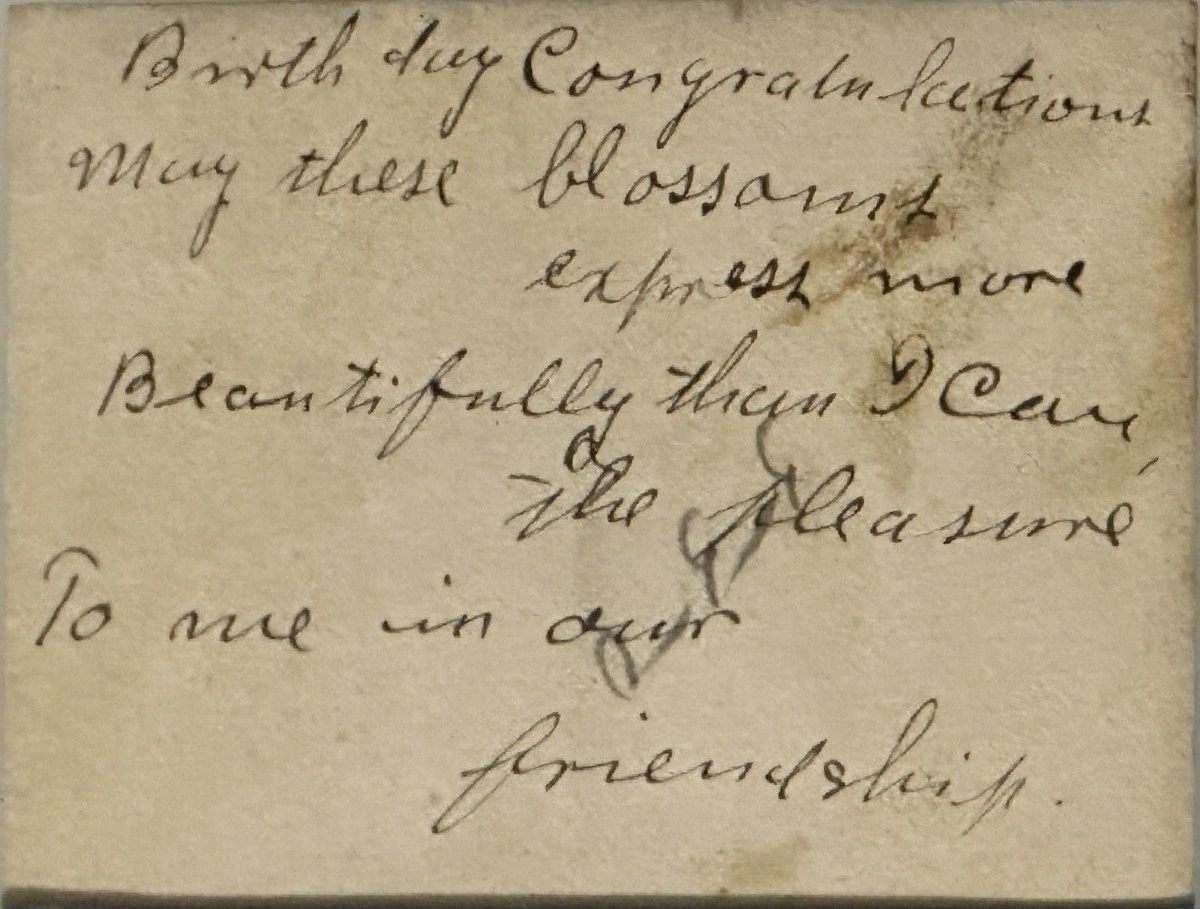 Birth day Congratulations
May these blossoms
express more
Beautifully than I Can,
the pleasure
To me in our
friendship.